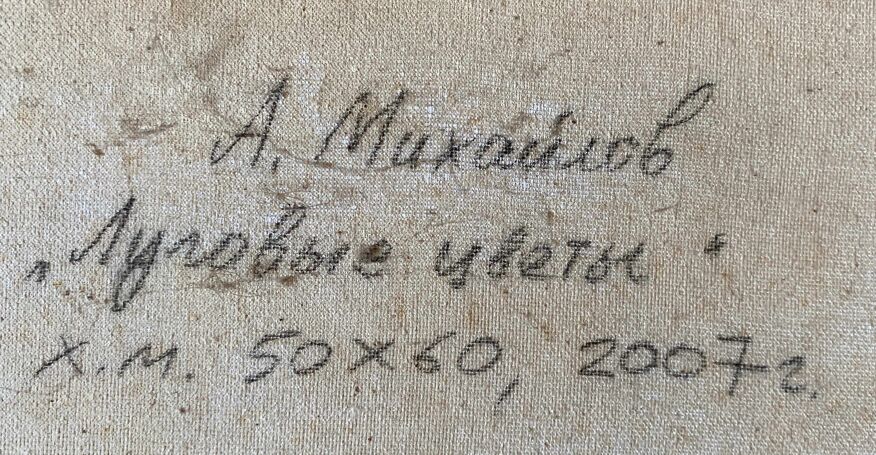 А. Михайлов
„Луговые цветы"
х.м. 50х60, 2007г.